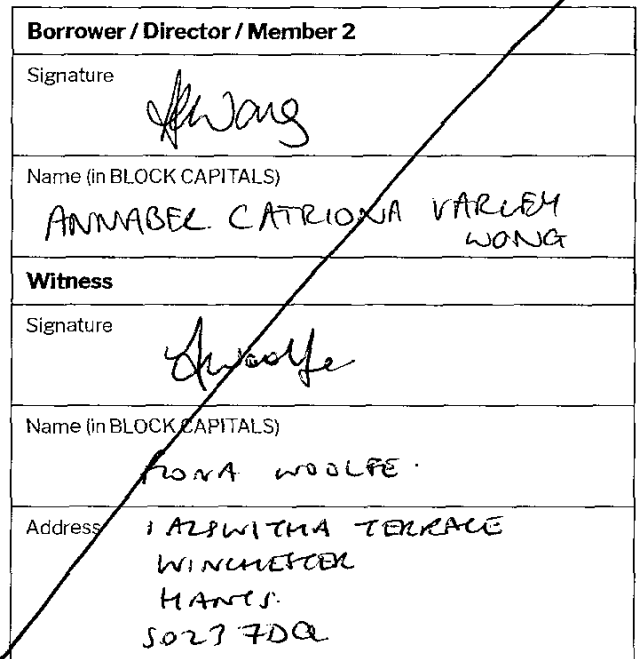 Borrower / Director / Member 2
Signature
AWong
Name (in BLOCK CAPITALS)
ANNABEL CATRIONA VARLEY
WONG
Witness
Signature
FWoolfe
Name (in BLOCK CAPITALS)
FIONA WOOLFE.
Address
1 ALSWITHA TERRACE
WINCHESTER
HANTS.
SO23 7DQ